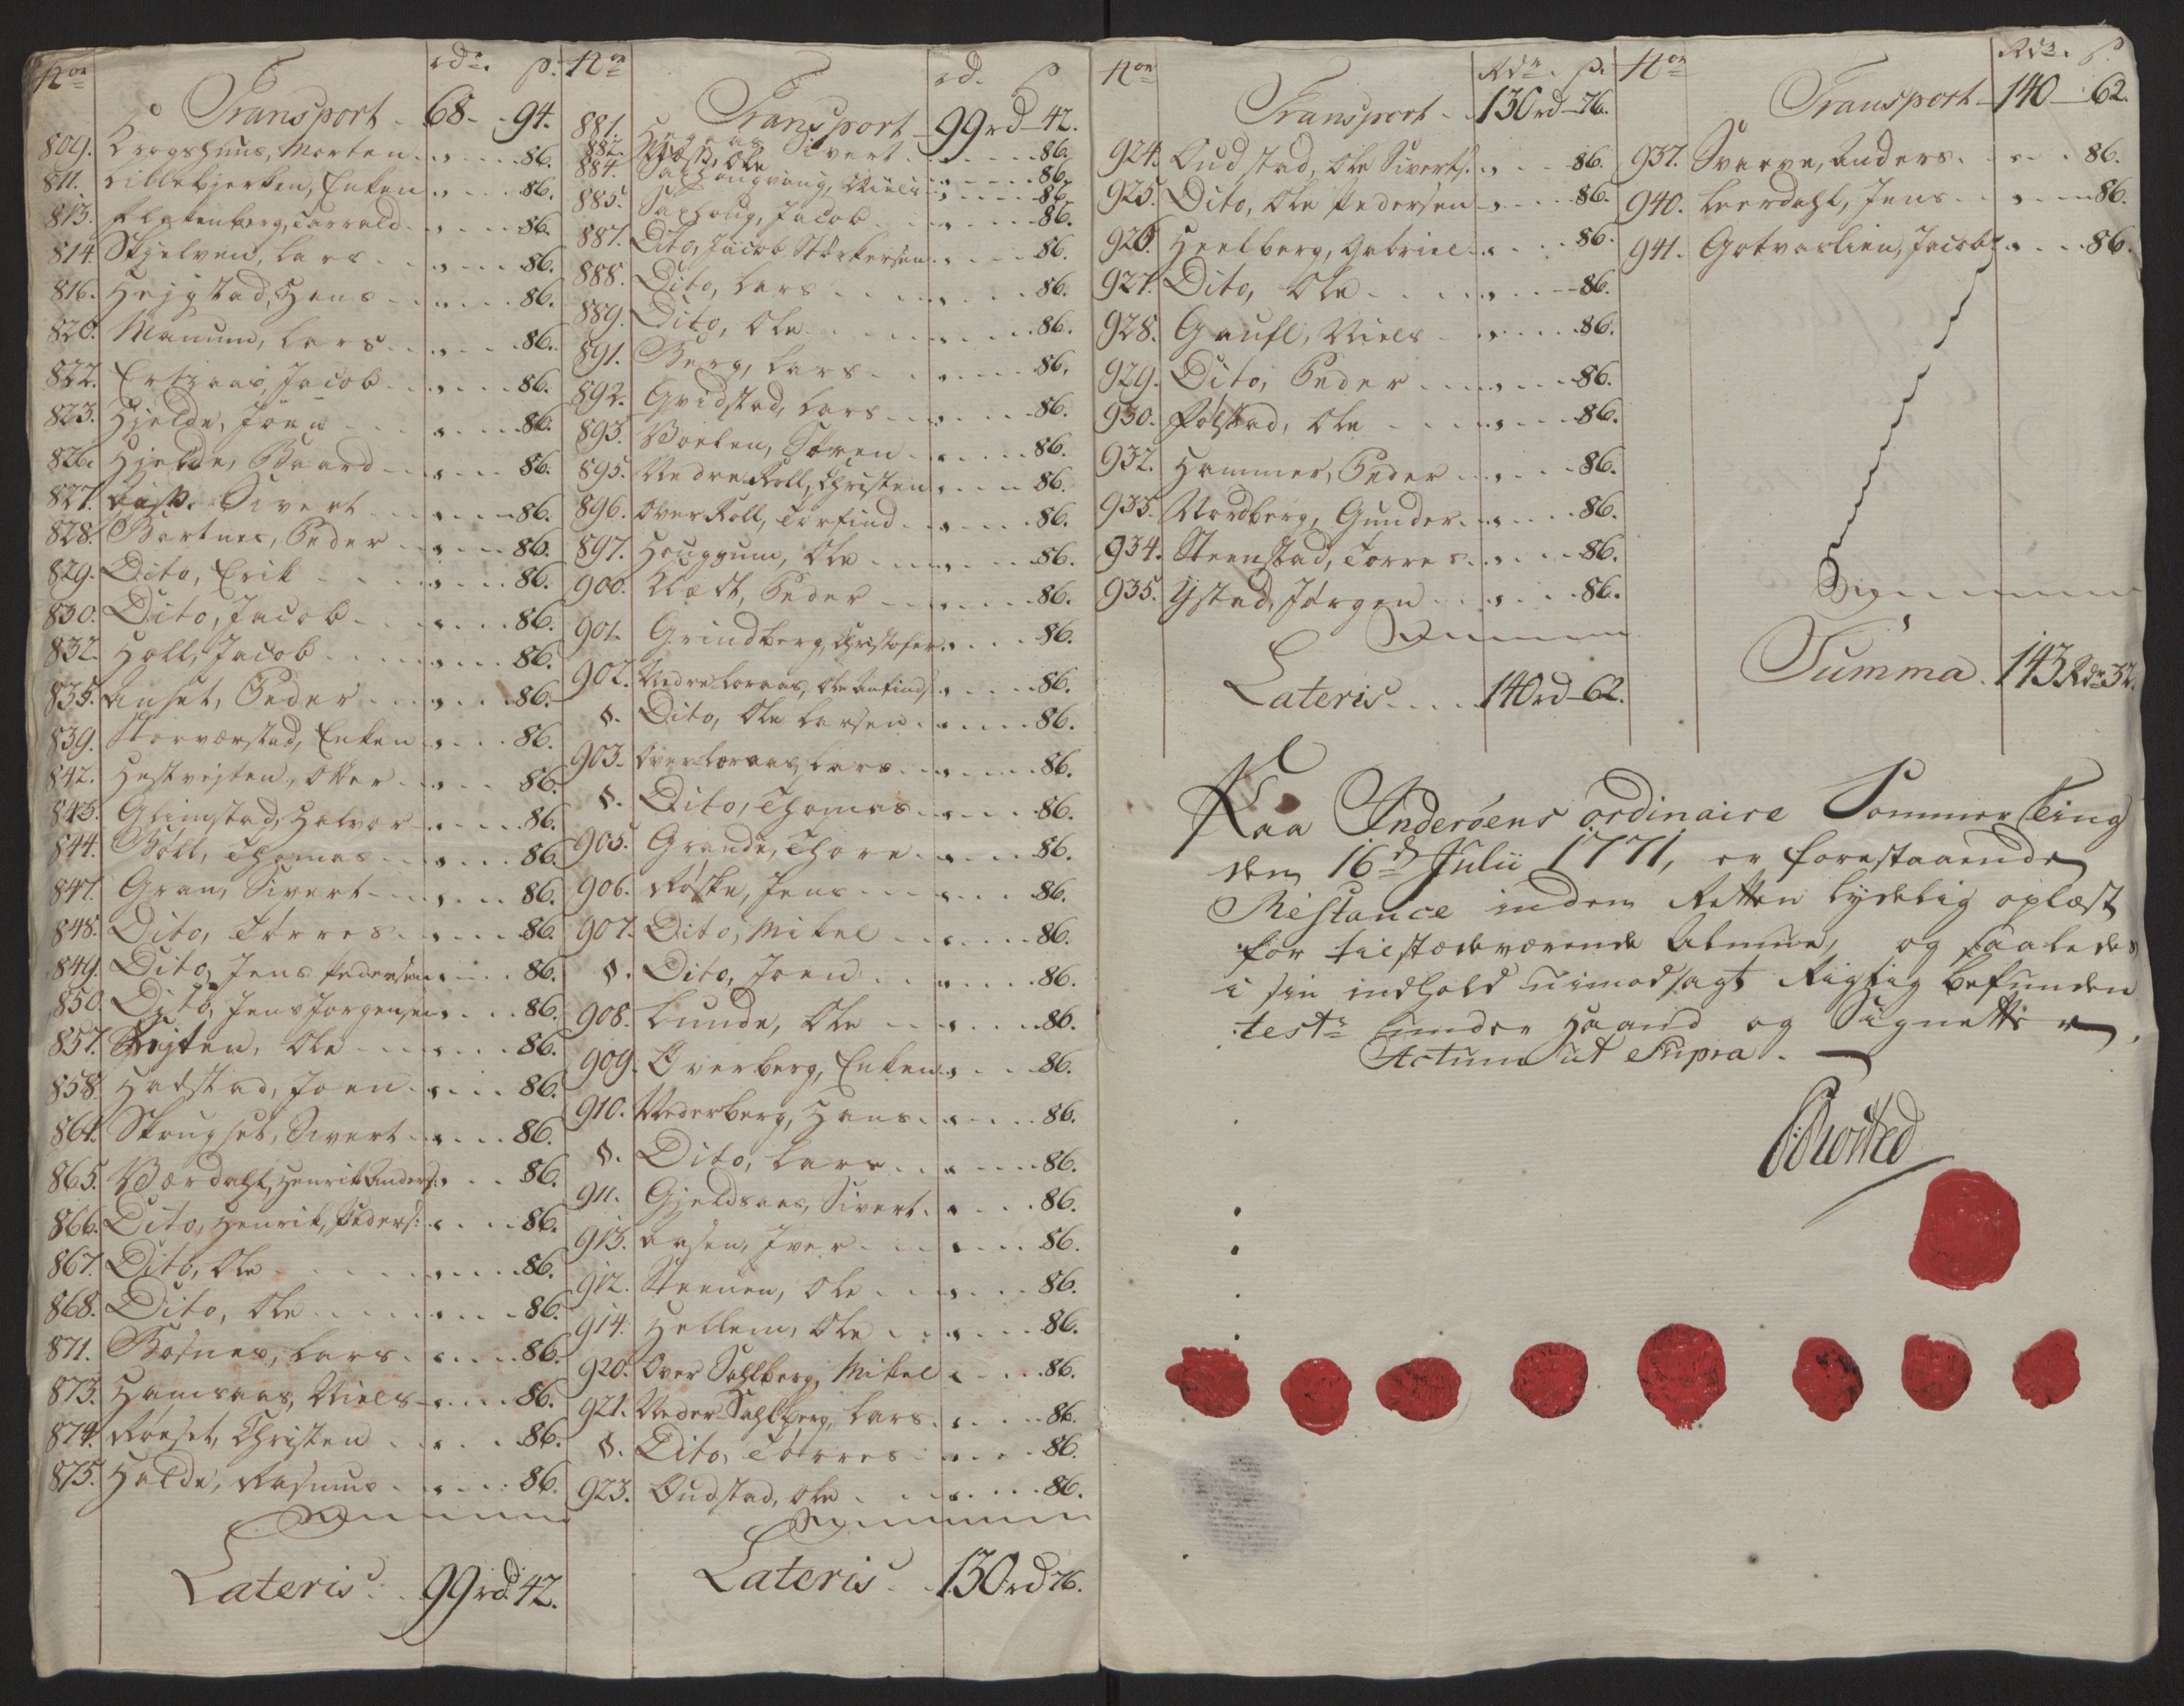 No rdr. s:
Transport 68 - 94.
809. Krogshuus, Morten 86.
811. Lillekjerken, Enken 86.
813. Flatenberg, Tarrald 86.
814. Skjelven, Lars 86.
816. Hejgstad, Hans 86.
820. Manum, Lars 86.
822. Ertzaas, Jacob 86.
823. Hjelde, Joen 86.
826. Hjelde, Baard 86.
827. Sivert 86.
828. Bartnes, Peder 86.
829. Dito, Erik 86.
830. Dito, Jacob 86.
832. Holl, Jacob 86.
835. Anset, Peder 86.
839. Storværstad, Enken 86.
842. Hestvejten, Otter 86.
843. Glimstad, Halvor 86.
844. Böll, Thomas 86.
847. Gran, Sivert 86.
848. Dito, Törres 86.
849. Dito, Jens Pedersen 86.
850. Dito, Jens Jorgensen 86.
857. Vejten, Ole 86.
858. Hadstad, Joen 86.
864. Skrugset, Sivert 86.
865. Værdahl, Henrik Anders: 86.
866. Dito, Henrik, Peders: 86.
867. Dito, Ole 86.
868. Dito, Ole 86.
871. Bosnes, Lars 86.
873. Hamsaas, Niels 86.
874. Röeset, Christen 86.
875. Halde, Rasmus 86.
Lateris 99rd 42.
No rd. s
Transport 99rd - 42.
881. Hegaas Sivert 86.
882. Ole 86.
884. Salhougvang, Niels 86.
885. Salhoug, Jacob 86.
887. Dito, Jacob Störkersen 86.
888. Dito, Lars 86.
889. Dito, Ole 86.
891. Berg, Lars 86.
892. Qvidstad, Lars 86.
893. Voelen, Sören 86.
895. Nedre Roll, Christen 86.
896. Over Roll, Torfind 86.
897. Hougsum, Ole 86.
900. Klædt, Peder 86.
901. Grindberg, Christofer 86.
902. Nedre Loraas, Ole Anfinds: 86.
§. Dito, Ole Larsen 86.
903. Over Loraas, Lars 86.
§. Dito, Thomas 86.
905. Grande, Thore 86.
906. Röske, Jens 86.
907. Dito, Mikel 86.
§. Dito, Joen 86.
908. Lunde, Ole 86.
909. Overberg, Enken 86.
910. Nederberg, Hans 86.
§. Dito, Lars 86.
911. Gjeldsaas, Sivert 86.
913. Aasen, Iver 86.
912. Steenen, Ole 86.
914. Hellem, Ole 86.
920. Over Sahlberg, Mikel 86.
921. Neder Sahlberg, Lars 86.
§. Dito, Törres 86.
923. Oudstad, Ole 86.
Lateris 130rd 76.
No Rdr. s.
Transport 130rd - 76.
924. Oudstad, Ole Siverts: 86.
925. Dito, Ole Pedersen 86.
926. Heelberg, Gabriel 86.
927. Dito, Ole 86.
928. Gaufl, Niels 86.
929. Dito, Peder 86.
930. Følstad, Ole 86.
932. Hammer, Peder 86.
933. Nordberg, Gunder 86.
934. Steenstad, Torres 86.
935. Ystad, Jörgen 86.
Lateris 140rd - 62.
No Rdr. s.
Transport 140 - 62.
937. Svarve, Anders 86.
940. Leerdahl, Jens 86.
941. Gotvaslien, Jacob 86.
Summa 143 Rdr 32.
Paa Inderöens ordinaire Sommer Ting
den 16de Julii 1771, er forestaaende
Restance inden Retten lydelig oplæst
for tilstædeværende Almue, og saaledes
i sin indhold uimodsagt Rigtig befunden
test: under Haand og Signetter.
Actum ut Supra.